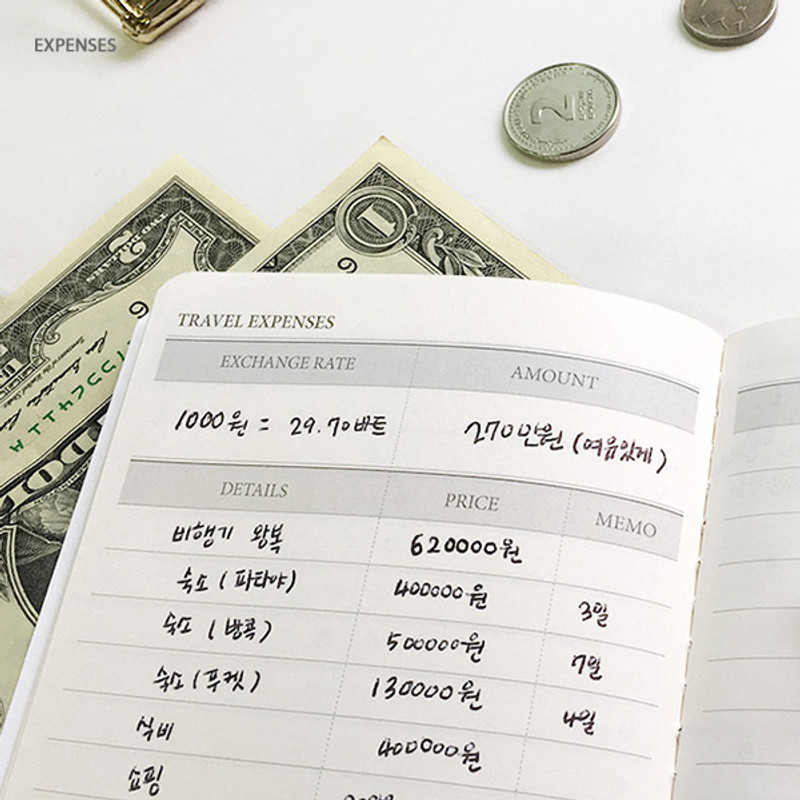 EXPENSES
TRAVEL EXPENSES
EXCHANGE RATE AMOUNT
1000원 = 29.70바트 270만원 (여유있게)
DETAILS PRICE MEMO
비행기 왕복 620000원
숙소 (파타야) 400000원 3일
숙소 (방콕) 500000원 7일
숙소 (푸켓) 130000원 4일
식비 400000원
쇼핑